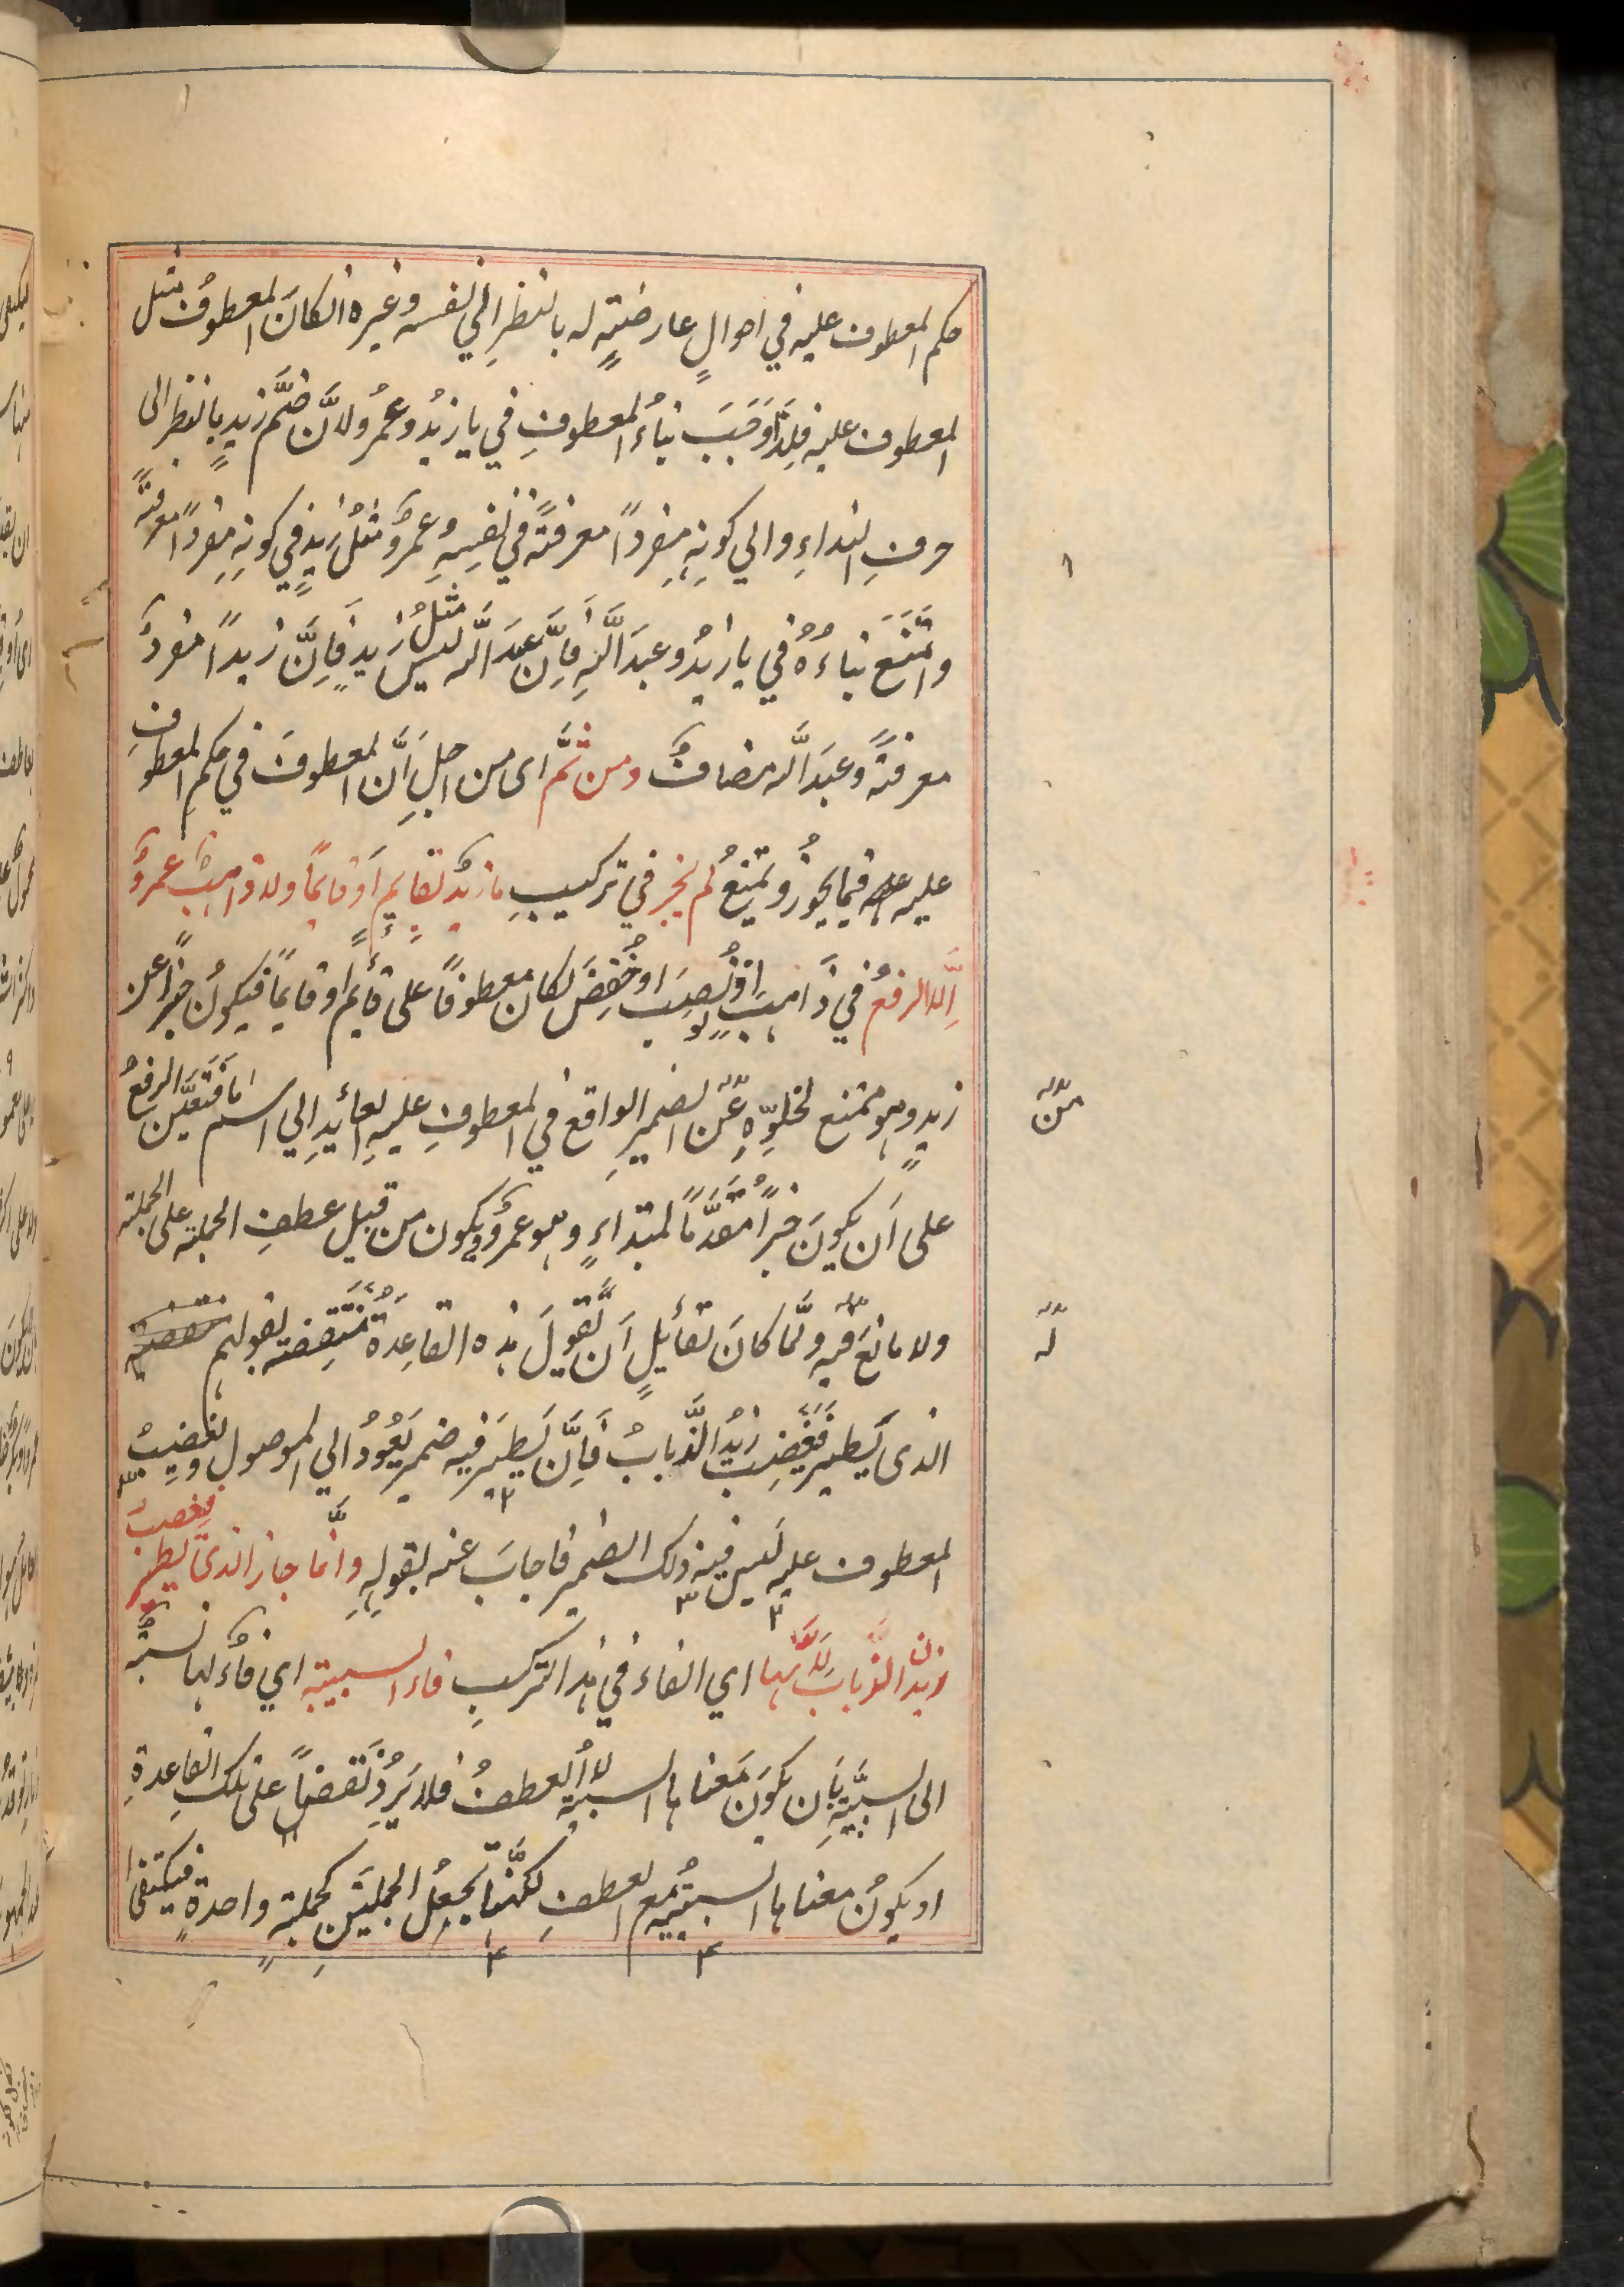 حكم المعطوف عليه في احوالٍ عارضتهٍ له بالنظرِ الي نفسه وغيره انكانَ المعطوفُ مثل
المعطوف عليه فلِذَا وَجَبَ بناءُ المعطوفِ في يا زيدُ وعمرُو لانَّ ضمَّ زيدٍ بالنظر الى
حرفِ النداءِ والي كونِهِ مفردًا معرفتًه في نفسِهِ وعمرٌو مثلُ زيدٍ في كونِهِ مفردًا معرفتًه
وامْتَنَعَ بناءُهُ في يا زيدُ وعبدَ اللّهِ فاِنَّ عبدَ اللّه ليس مثلُ زيدٍ فَاِنَّ زيدًا مفردٌ
معرفتًه وعبدَ اللّه مضافٌ ومن ثمَّ اى من اجلِ اَنَّ المعطوفَ في حكمِ المعطوفِ
عليه فيما يجوزُ ويمتنعُ لم يجز في تركيبِ ما زيدٌ بقايمٍ اَوْ قايمًا ولا ذاهبٌ عمرٌو
اِلّا الرفعُ في ذَاهبٍ اذ لو نُصِبَ او خُفِضَ لكان معطوفًا على قايمٍ او قايمًا فيكونُ خبرًا عن
زيدٍ وهو ممتنع لخلوِّهِ عن الضميرِ الواقعِ في المعطوفِ عليهِ العائدِ الي اسم ما فَتَعَيَّن الرفعُ
من
على اَن يكونَ خبرًا مُقَدَّمًا لمبتداءٍ وهو عمرٌو ويكون من قبيل عطفِ الجملته على الجملته
ولا مانعَ فيه ولمَّا كانَ لقائلٍ اَن يَّقولَ هذه القاعِدَةُ مُنْتَقِضَته بقولهم
له
الذى يَطيرُ فَيَغْضِبُ زيدٌ الذُّبابُ فاَِنَّ يَطيرَ فيه ضمير يَعُودُ الي الموصول ويغضبُ
المعطوف عليه لَيس فيه ذلك الضمير فاجابَ عنه بقولِهِ وانَّما جاز الذىْ يَطير فيغضب
زيدٌ الذُّبابُ لِاَنَّها اي الفاء في هذا التركيبِ فاء السببيته اي فاءٌ لها نسبتٌه
الى السببيَّتهِ بِاَن يكوَن مَعْناها السببيته لا العطفُ فلا يَرِدُ نقضًا على تلك القاعدةِ
او يكونُ معناها السببيّتُه مع العطفِ لكنَّها تجعلُ الجملتَينِ كجملتهٍ واحدةٍ فيكتفى